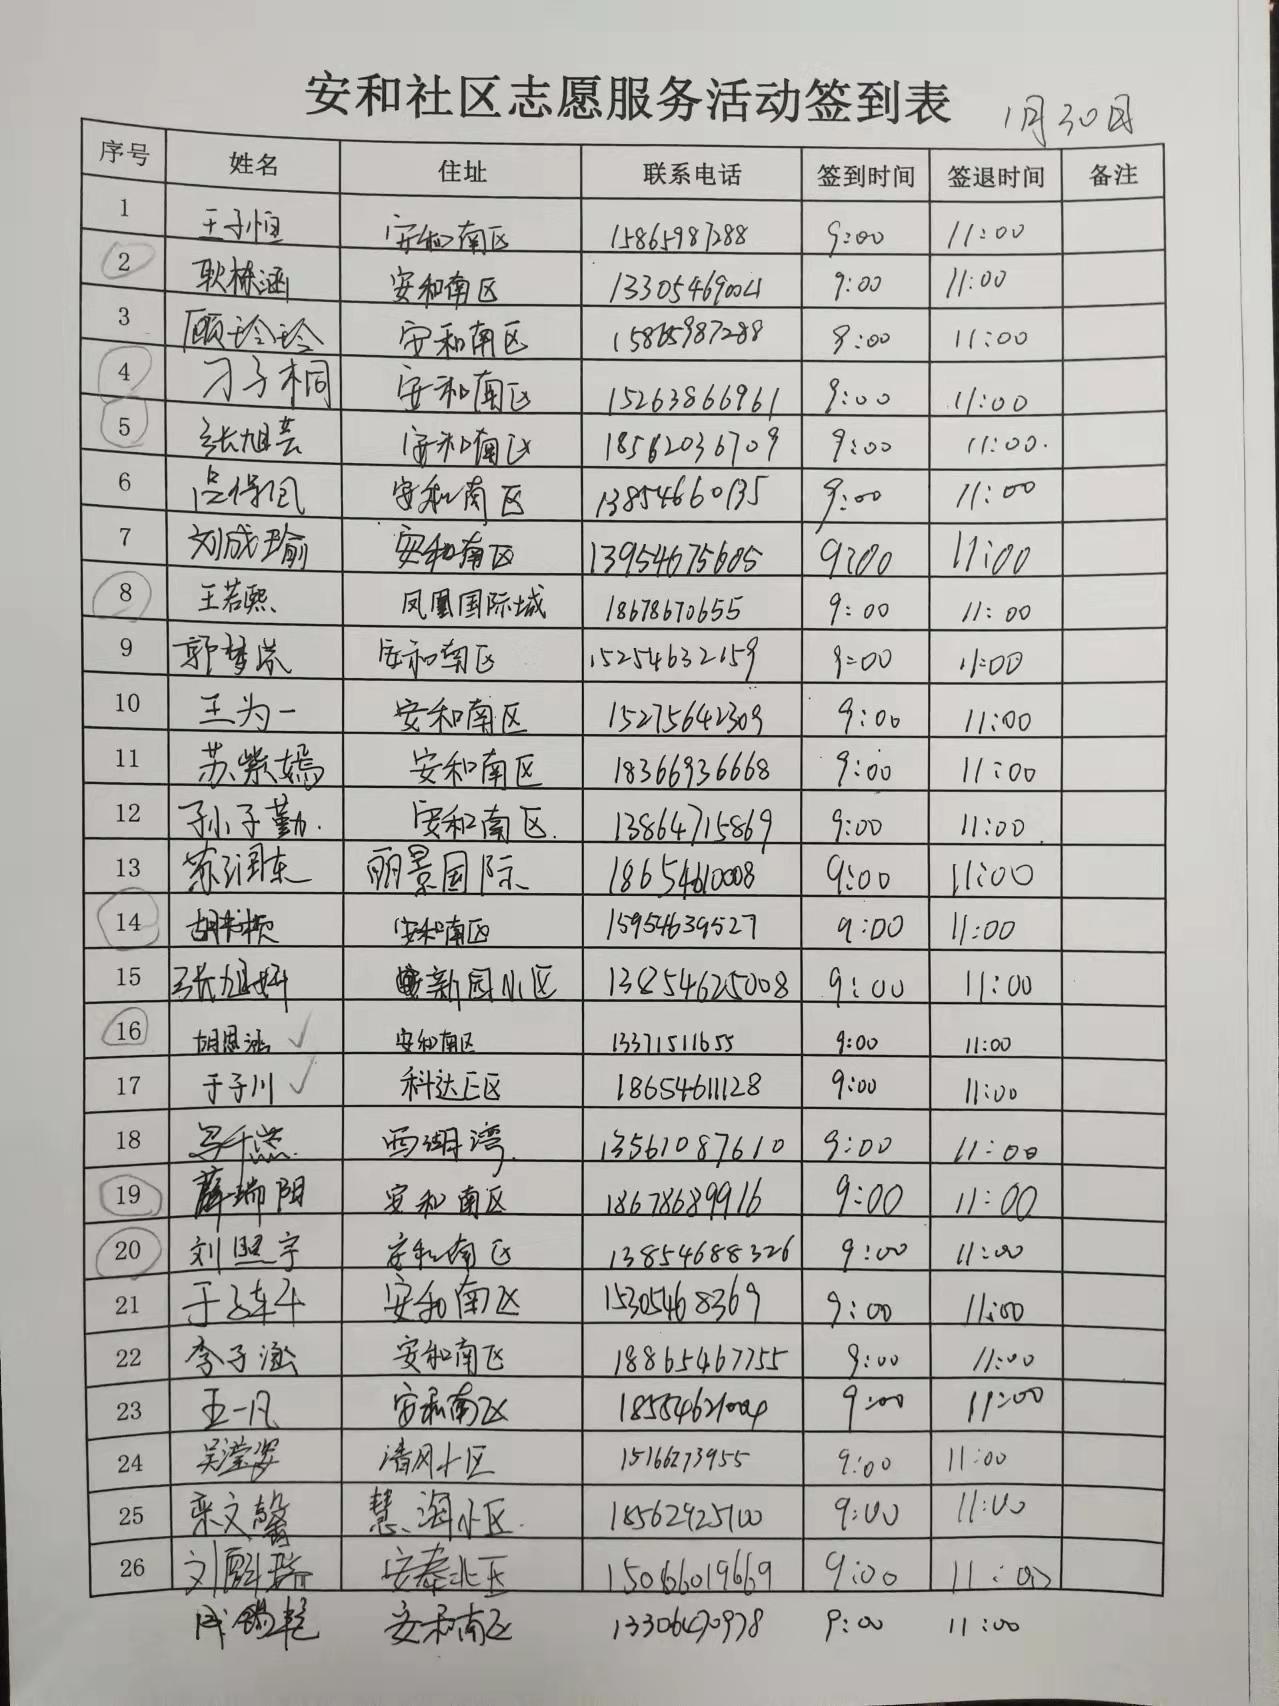 安和社区志愿服务活动签到表 1月30日
序号 姓名 住址 联系电话 签到时间 签退时间 备注
1 王子恒 安和南区 15865987288 9:00 11:00
2 耿栋涵 安和南区 13305469004 9:00 11:00
3 顾玲玲 安和南区 15865987288 9:00 11:00
4 刁子桐 安和南区 15263866961 9:00 11:00
5 张旭芸 安和南区 18562036709 9:00 11:00
6 安和南区 13854660135 9:00 11:00
7 刘成瑜 安和南区 13954675605 9:00 11:00
8 王若熙 凤凰国际城 18678670655 9:00 11:00
9 郭梦 安和南区 15254632159 9:00 11:00
10 王为一 安和南区 15275642309 9:00 11:00
11 苏紫嫣 安和南区 18366936668 9:00 11:00
12 孙子勤 安和南区 13864715869 9:00 11:00
13 苏润东 丽景国际 18654610008 9:00 11:00
14 胡 安和南区 15954639527 9:00 11:00
15 张旭妍 新园小区 9:00 11:00
16 胡思涵 安和南区 13371511655 9:00 11:00
17 于子川 科达E区 18654611128 9:00 11:00
18 西湖湾 13561087610 9:00 11:00
19 薛瑞阳 安和南区 18678689916 9:00 11:00
20 刘照宇 安和南区 13854688326 9:00 11:00
21 于 安和南区 15305468369 9:00 11:00
22 李子涵 安和南区 18865467755 9:00 11:00
23 王一凡 安和南区 18554621004 9:00 11:00
24 吴滢姿 清风小区 15166273955 9:00 11:00
25 栾文馨 慧海小区 18562925100 9:00 11:00
26 刘 安泰北区 15066019669 9:00 11:00
安和南区 13306470978 9:00 11:00